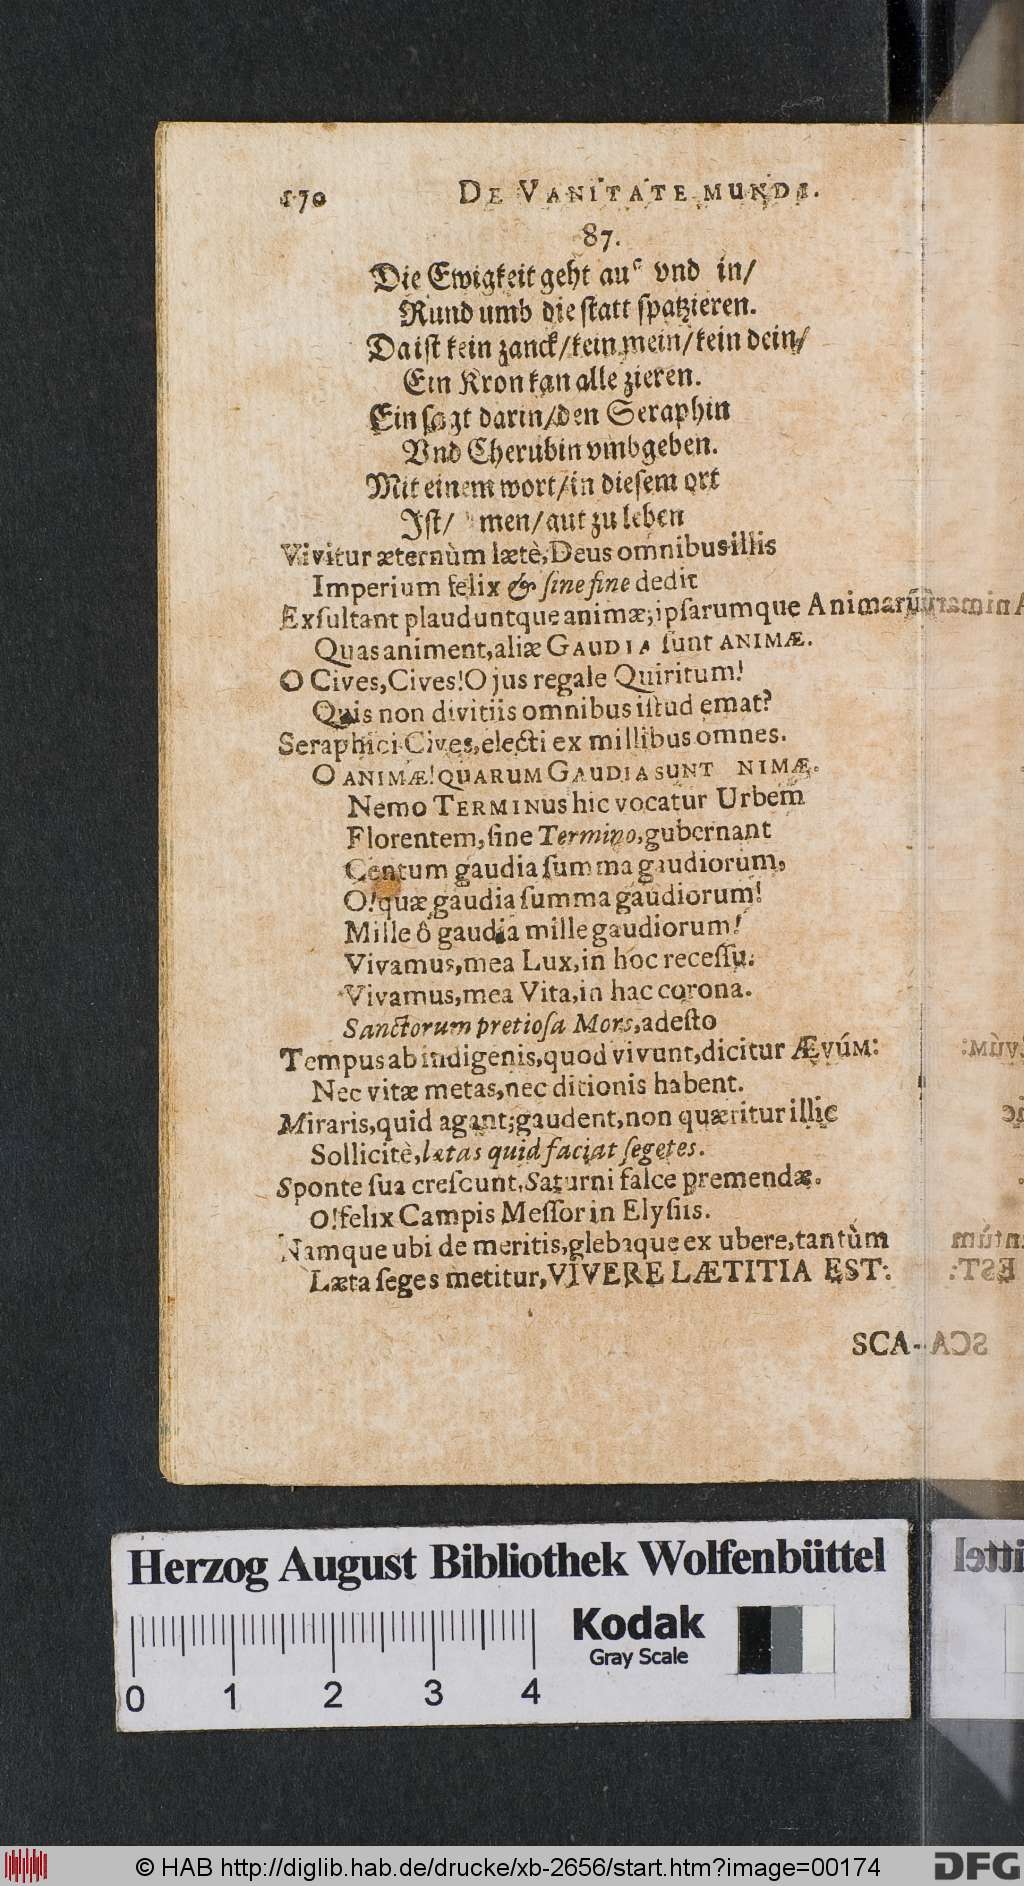 170 DE VANITATE MUNDI.
87.
Die Ewigkeit geht auſ vnd in/
Rund umb die ſtatt ſpatzieren.
Da iſt kein zanck/kein mein/kein dein/
Ein Kron kan alle zieren.
Ein darin/den Seraphin
Vnd Cherubin vmbgeben.
Mit einem wort/in dieſem ort
Jſt/ men/gut zu leben
Vivitur æternùm lætè, Deus omnibus illis
Imperium felix & ſine fine dedit
Exſultant plauduntque animæ; ipſarumque Animarũ
Quas animent, aliæ GAUDIA ſunt ANIMÆ.
O Cives, Cives! O jus regale Quiritum!
Quis non divitiis omnibus iſtud emat?
Seraphici Cives, electi ex millibus omnes.
O ANIMÆ! QUARUM GAUDIA SUNT NIMÆ.
Nemo TERMINus hic vocatur Urbem
Florentem, ſine Termino, gubernant
Centum gaudia ſumma gaudiorum,
O! quæ gaudia ſumma gaudiorum!
Mille ô gaudia mille gaudiorum!
Vivamus, mea Lux, in hoc receſſu.
Vivamus, mea Vita, in hac corona.
Sanctorum pretioſa Mors, adeſto
Tempus ab indigenis, quod vivunt, dicitur ÆVÚM:
Nec vitæ metas, nec ditionis habent.
Miraris, quid agant; gaudent, non quæritur illic
Sollicitè, lætas quid faciat ſegetes.
Sponte ſua creſcunt, Saturni falce premendæ.
O! felix Campis Meſſor in Elyſiis.
Namque ubi de meritis, glebaque ex ubere, tantùm
Læta ſeges metitur, VIVERE LÆTITIA EST:
SCA-
Herzog August Bibliothek Wolfenbüttel
Kodak
Gray Scale
0 1 2 3 4
© HAB http://diglib.hab.de/drucke/xb-2656/start.htm?image=00174
DFG